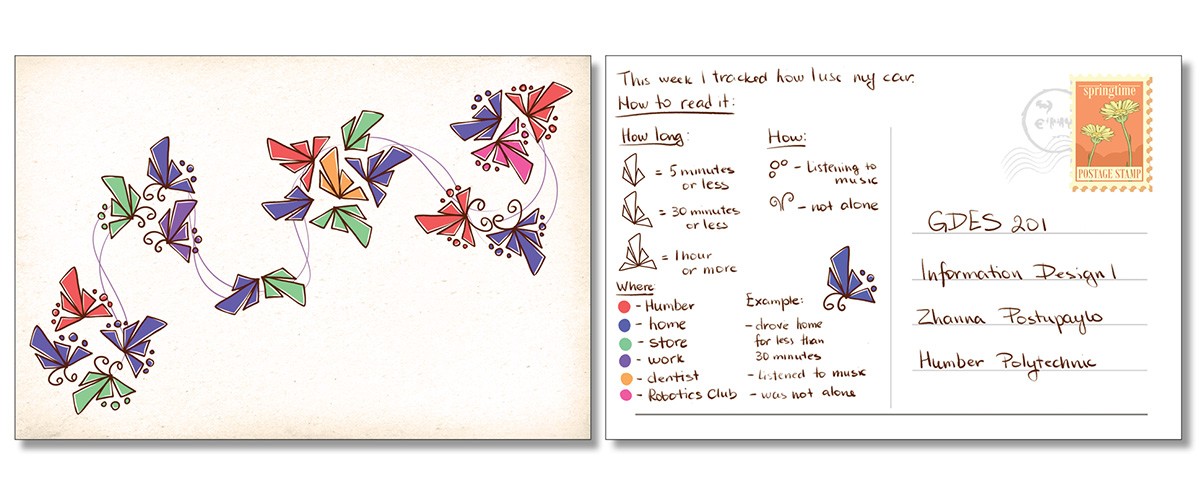 This week I tracked how I use my car.
How to read it:
How long:
= 5 minutes
or less
= 30 minutes
or less
= 1 hour
or more
How:
- Listening to
music
- not alone
Where:
- Humber
- home
- store
- work
- dentist
- Robotics Club
Example:
- drove home
for less than
30 minutes
- Listened to music
- was not alone
springtime
POSTAGE STAMP
GDES 201
Information Design 1
Zhanna Postupaylo
Humber Polytechnic